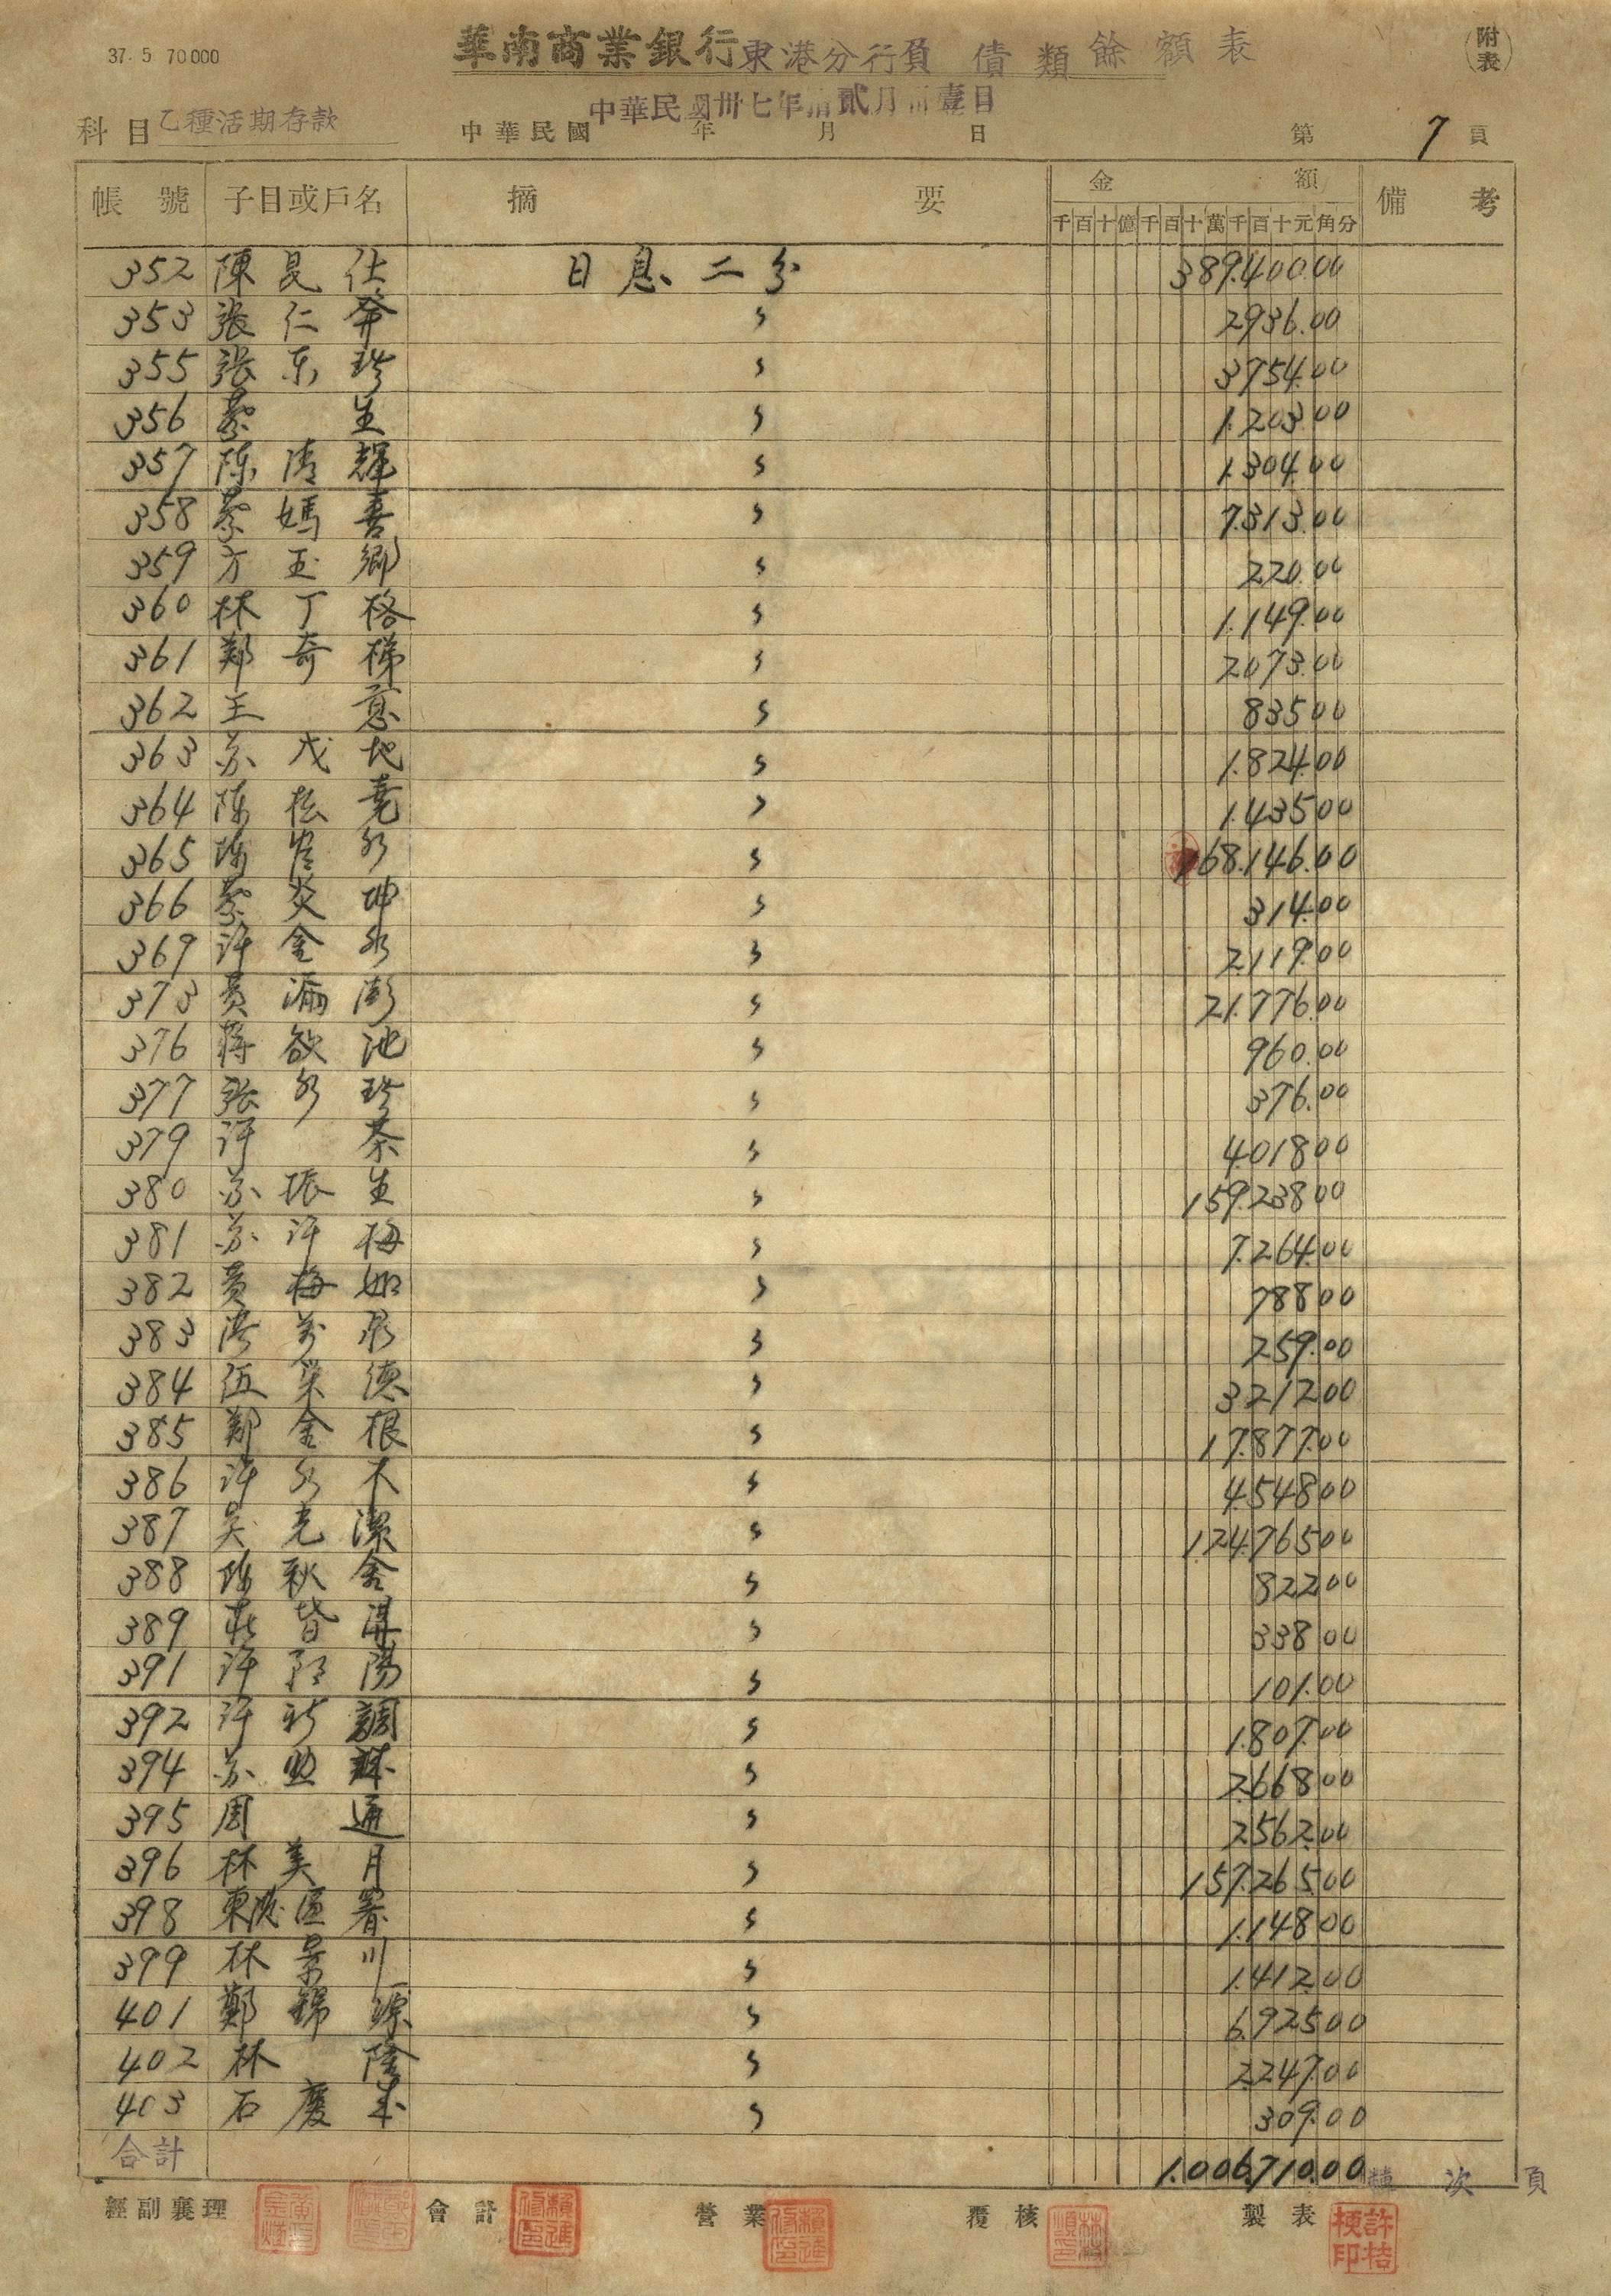 37. 5 70000
華南商業銀行東港分行負債類餘額表
(附表)
中華民國卅七年拾貳月卅壹日
科目 乙種活期存款 中華民國 年 月 日 第 7 頁
帳號 子目或戶名 摘要 金額 備考
千百十億千百十萬千百十元角分
352 陳昆仕 日息二分 389.400.00
353 張仁 〃 2936.00
355 張東珍 〃 3754.00
356 蔡生 〃 1.203.00
357 陳清輝 〃 1.304.00
358 蔡媽喜 〃 7.313.00
359 方玉鄉 〃 220.00
360 林丁格 〃 1.149.00
361 鄭奇梯 〃 2073.00
362 王意 〃 835.00
363 苏戊地 〃 1.824.00
364 陳松堯 〃 1.435.00
365 陳水 〃 168.146.00
366 蔡炎坤 〃 314.00
369 許金水 〃 2.119.00
373 黃澎 〃 21.776.00
376 蔣欲池 〃 960.00
377 張水珍 〃 376.00
379 許茶 〃 4.018.00
380 苏振生 〃 159.238.00
381 苏許梅 〃 7.264.00
382 黃梅如 〃 788.00
383 萬 〃 259.00
384 伍榮德 〃 3.212.00
385 鄭金根 〃 17.877.00
386 許水木 〃 4.548.00
387 吳克潔 〃 124.765.00
388 陳秋舍 〃 822.00
389 莊皆 〃 338.00
391 許陽 〃 101.00
392 許新調 〃 1.807.00
394 苏 〃 2.668.00
395 周通 〃 2.562.00
396 林美月 〃 157.265.00
398 東港區署 〃 1.148.00
399 林景川 〃 1.412.00
401 鄭錦源 〃 6.925.00
402 林陰 〃 2.247.00
403 石慶來 〃 309.00
合計 1.006.710.00 轉次頁
經副襄理 會計 營業 覆核 製表